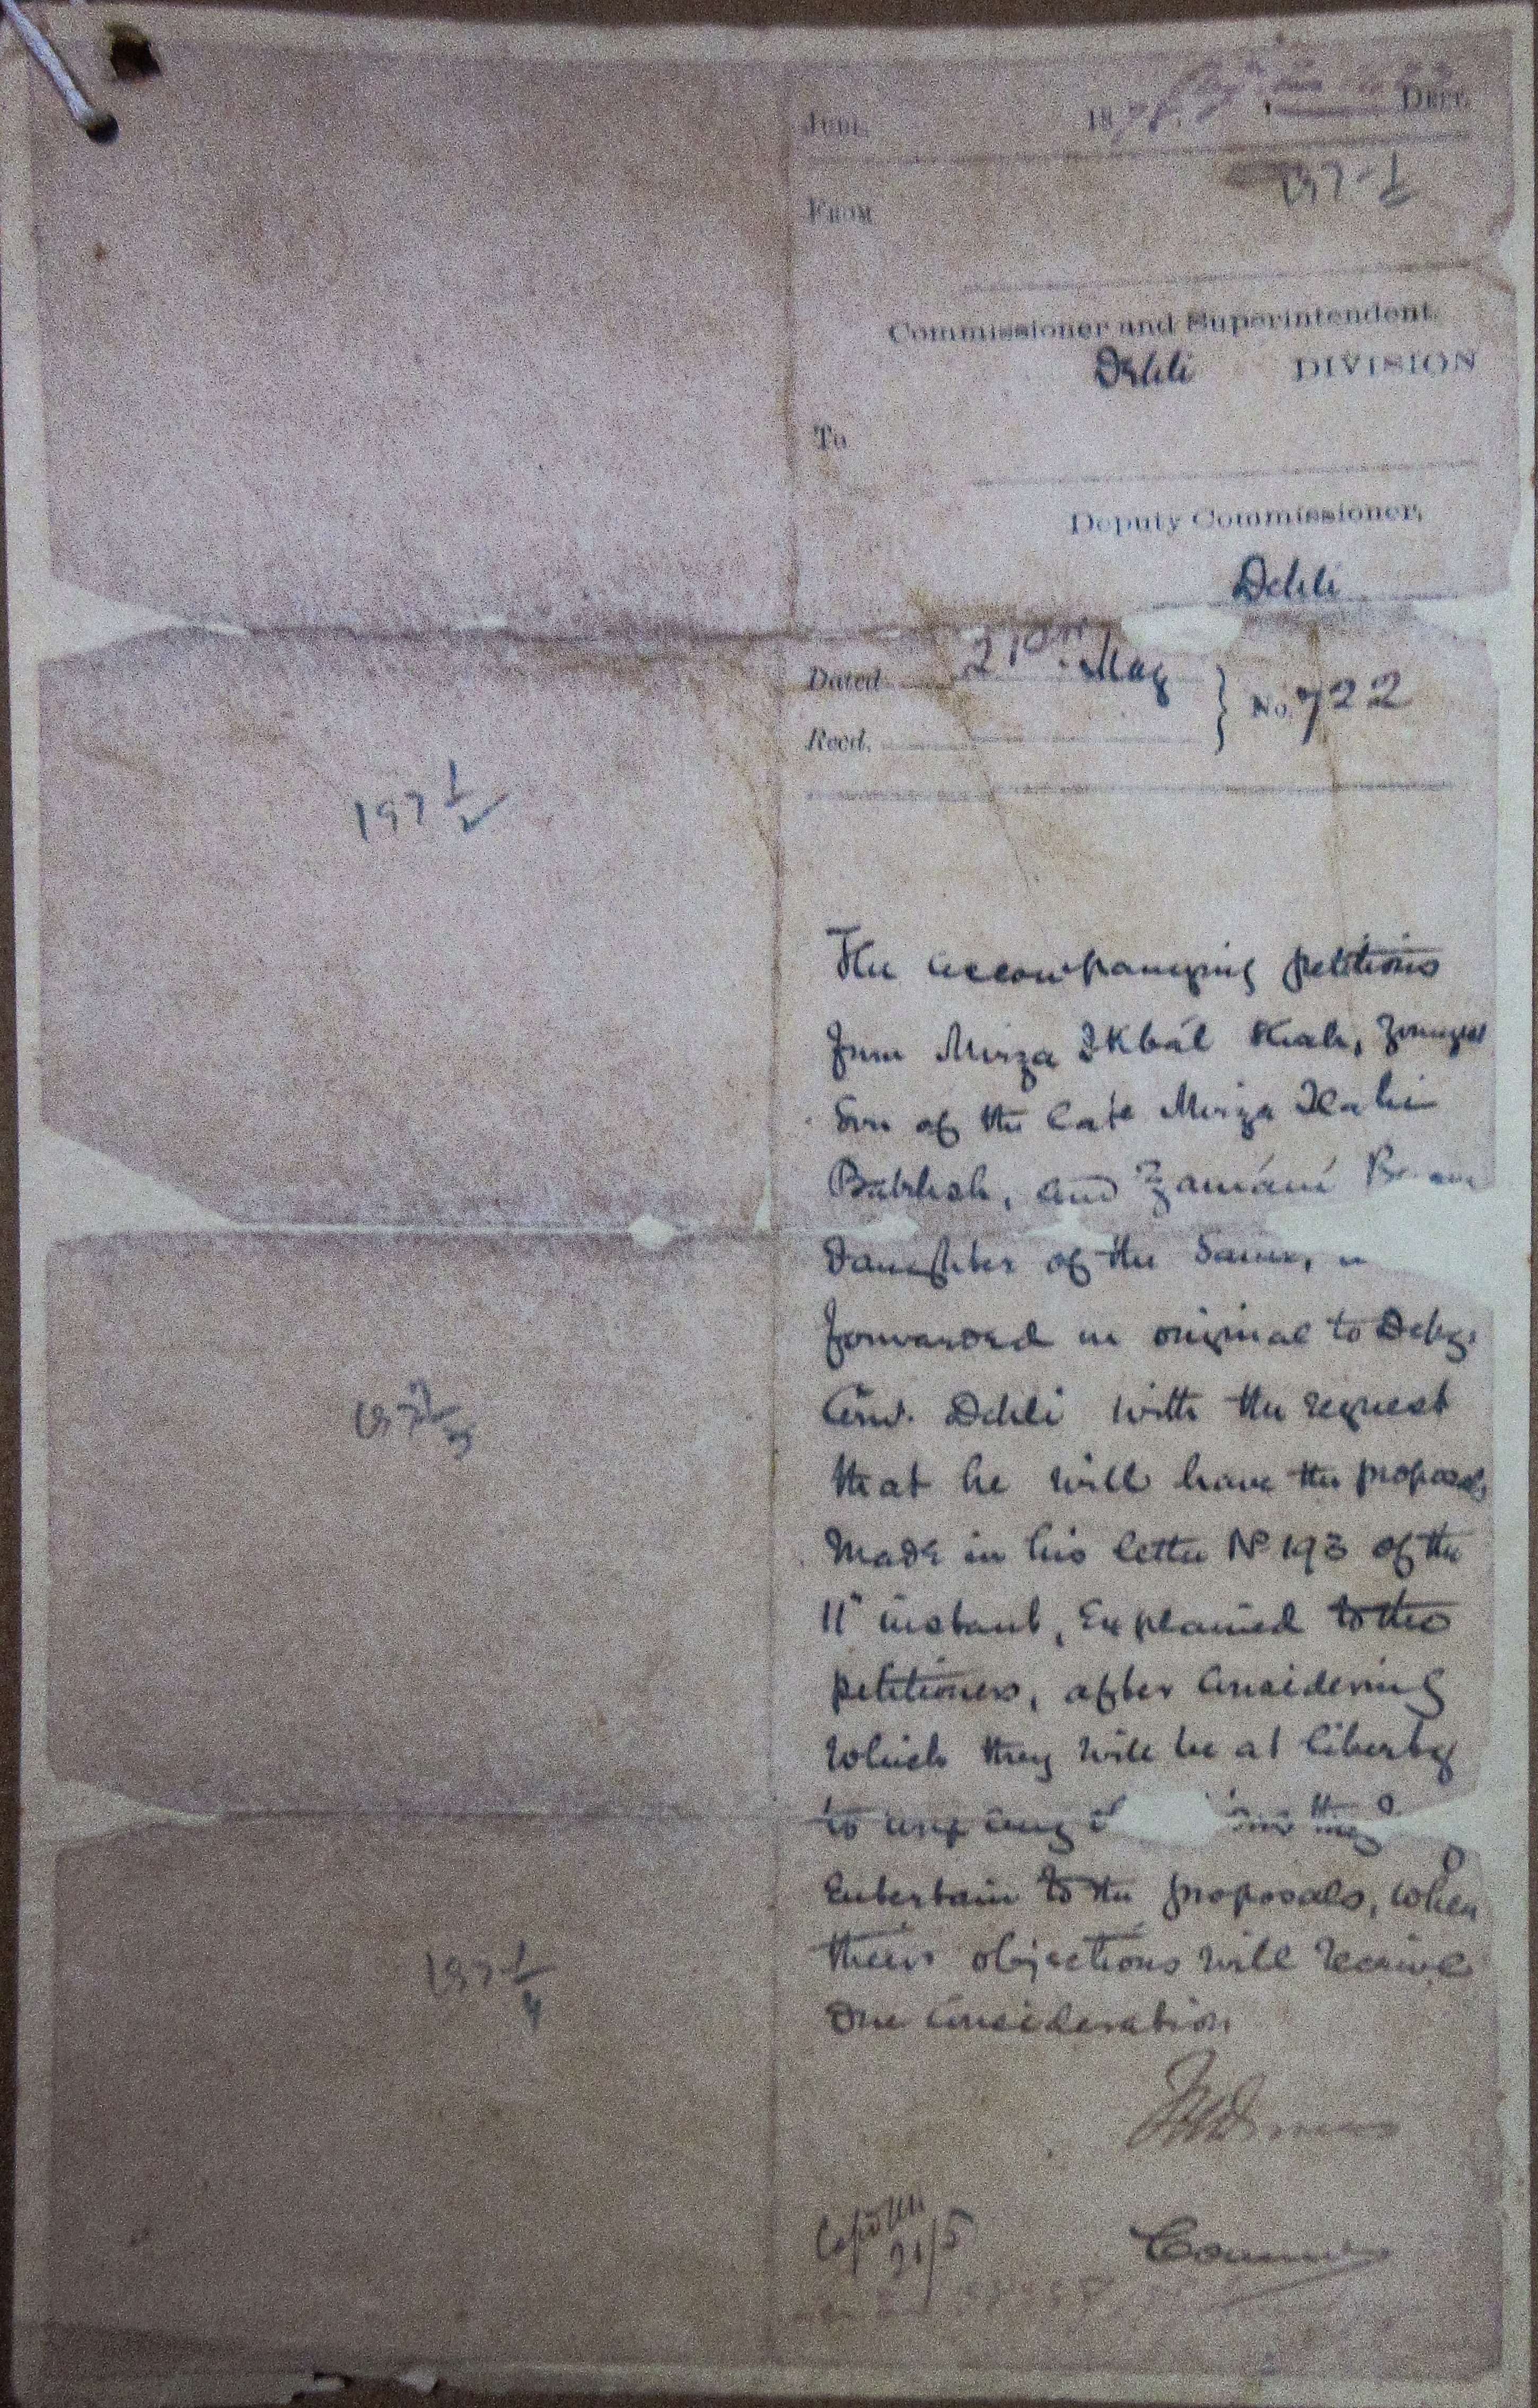 1878. DEPT.
FROM
197-1
Commissioner and Superintendent,
Dehli DIVISION
To
Deputy Commissioner,
Dehli
Dated 21st May
Recd.
No. 722
197 1/2
197 2/3
197 1/4
The accompanying petitions
from Mirza Ikbál Shah, youngest
Son of the late Mirza Ilahi
Baksh, and Zamání
daughter of the Same,
forwarded in original to Depy.
Comr. Dehli with the request
that he will have the proposals
made in his letter No 193 of the
11" instant, Explained to the
petitioners, after Considering
which they will be at liberty
to urge any they
Entertain to the proposals, when
their objections will receive
due Consideration
21/5